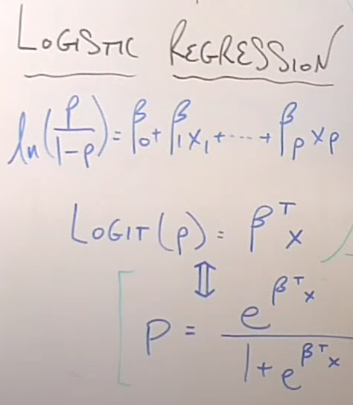 LOGISTIC REGRESSION
ln(p/1-p) = β₀ + β₁x₁ + ---- + βₚxₚ
LOGIT(p) = βᵀx
⇕
p = e^(βᵀx) / 1 + e^(βᵀx)